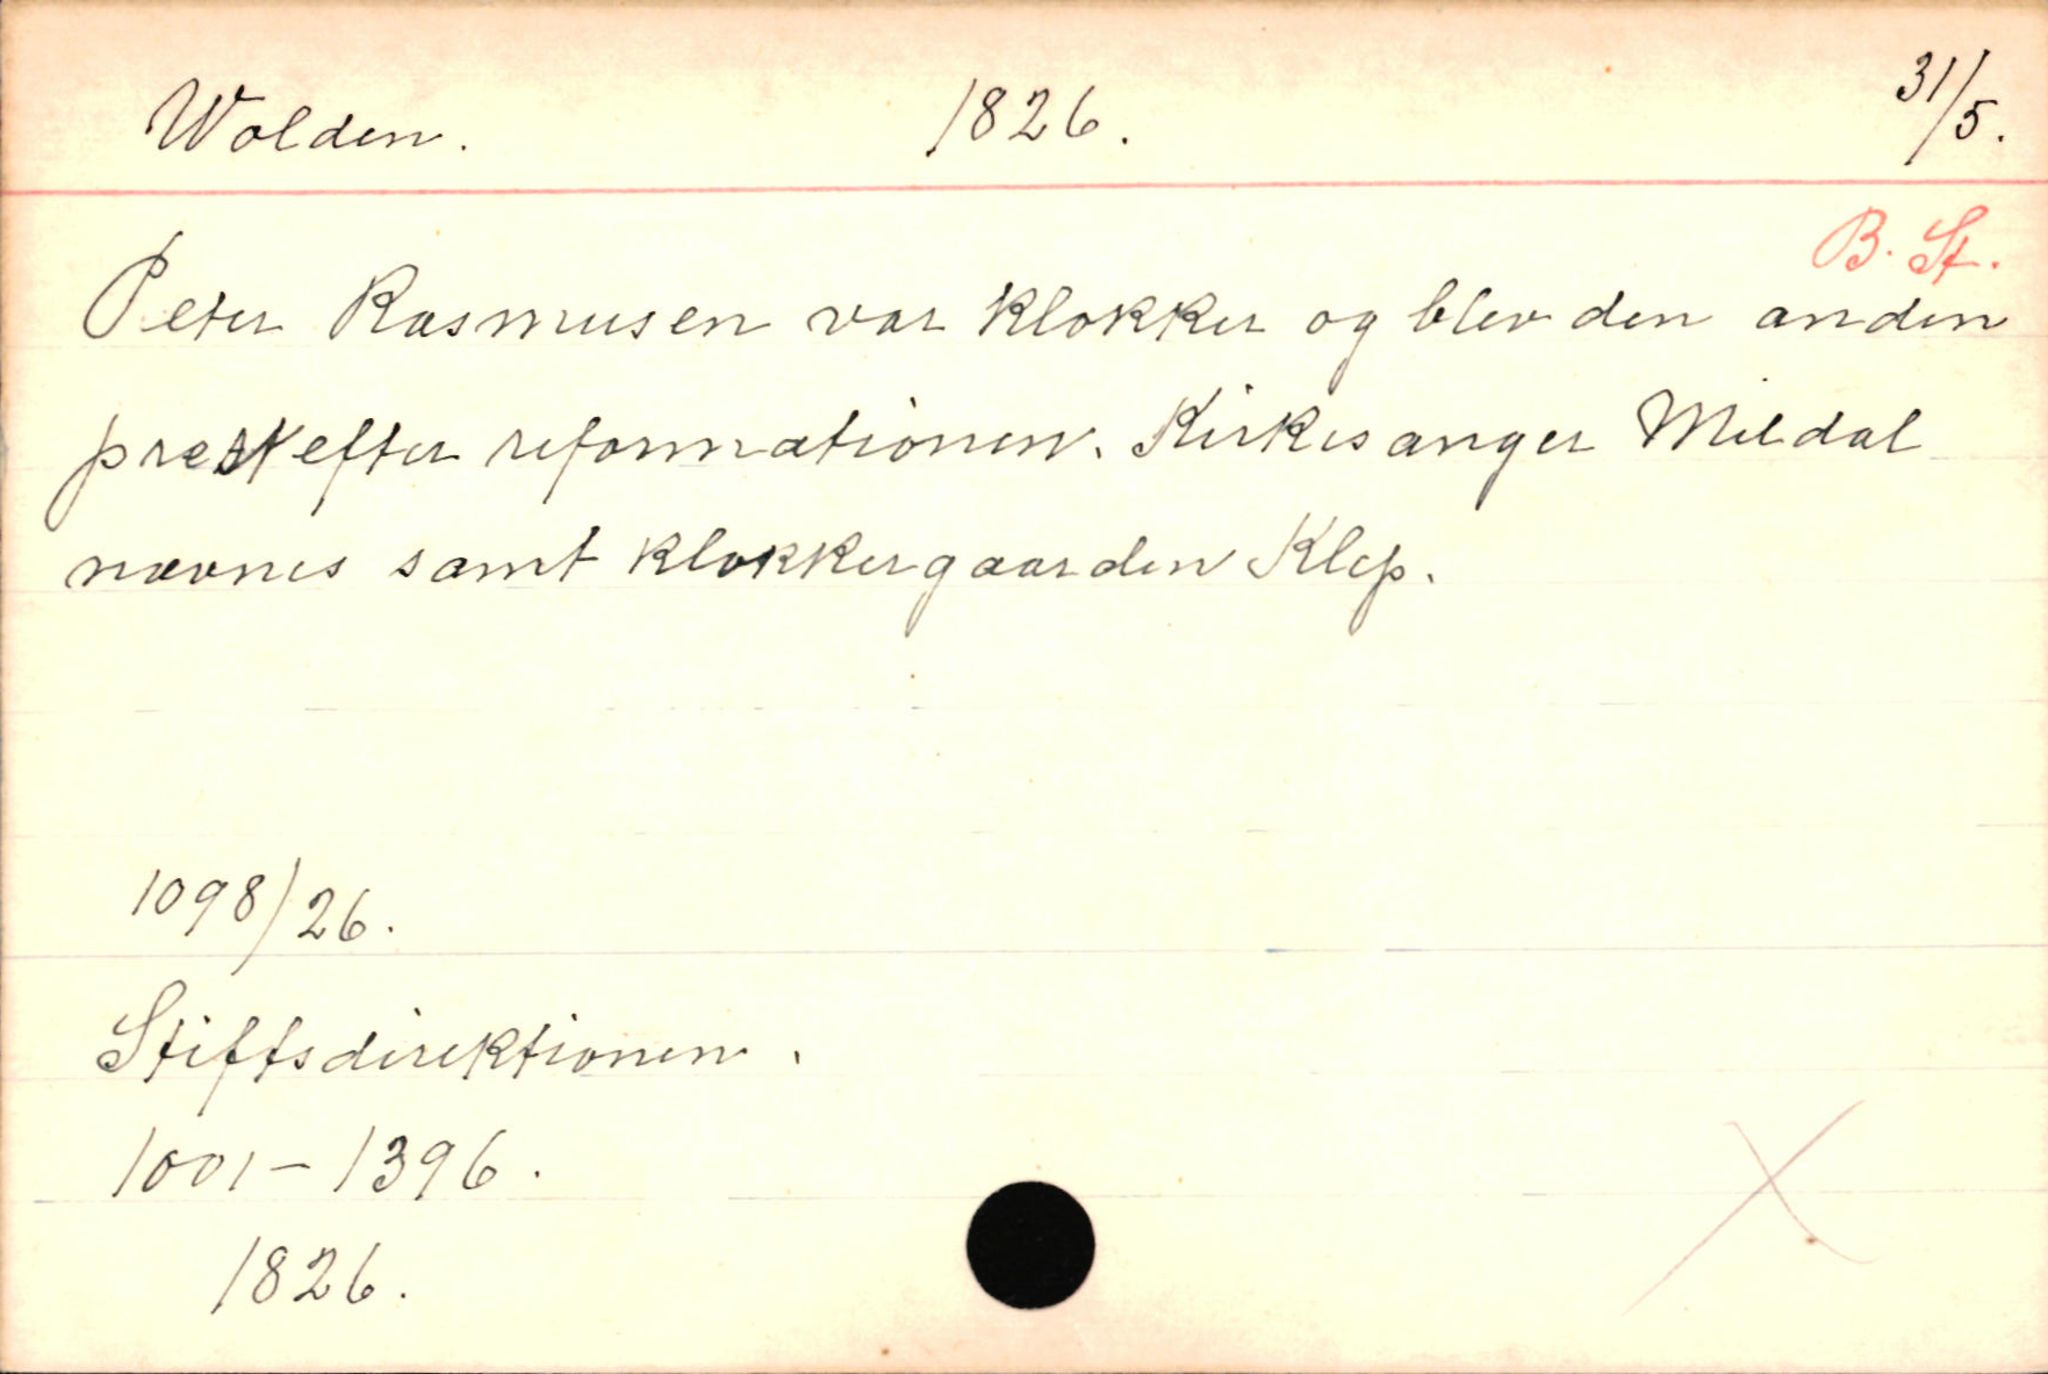 Wolden. 1826. 31/5.
B. St.
Peter Rasmusen var klokker og blev den anden
prest efter reformationen. Kirkesanger Mildal
nævnes samt klokkergaarden Klep.
1098/26.
Stiftsdirektionen.
1001-1396.
1826.